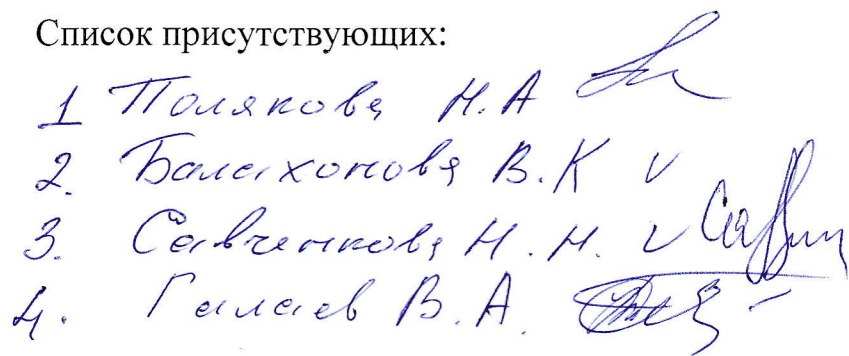 Список присутствующих:
1 Полякова Н.А
2. Балахонова В.К v
3. Савченкова Н.Н. v
4. Галаев В.А.